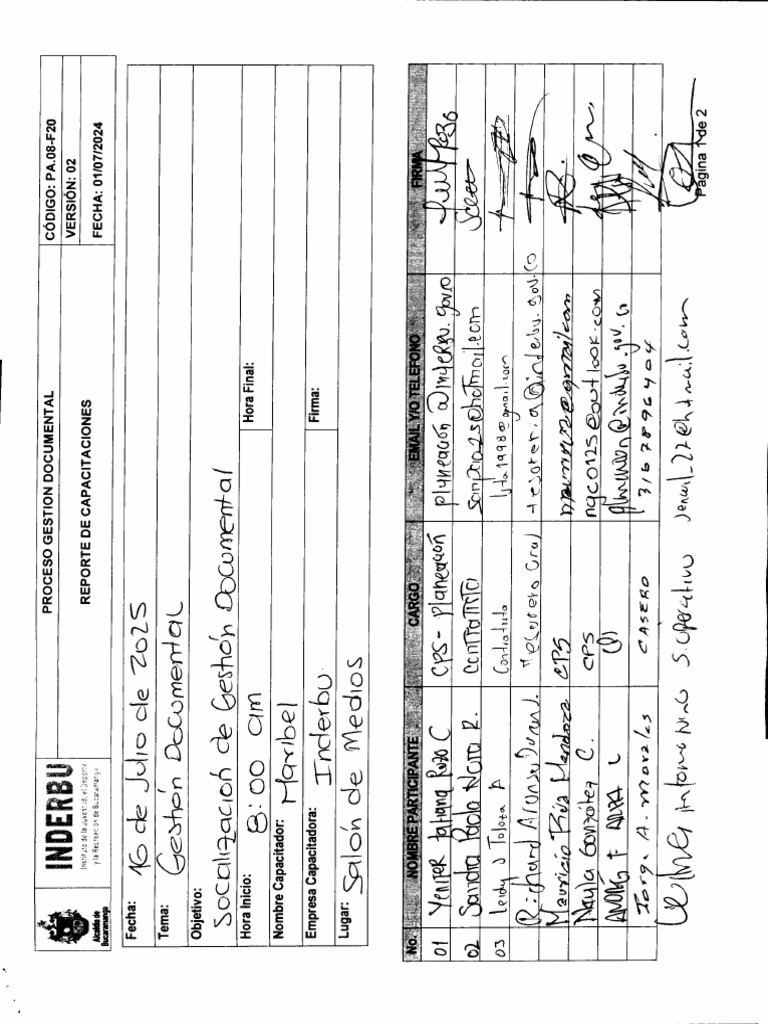 Alcaldía de
Bucaramanga
INDERBU
Instituto de la Juventud, el Deporte
y la Recreación de Bucaramanga
PROCESO GESTION DOCUMENTAL
REPORTE DE CAPACITACIONES
CÓDIGO: PA.08-F20
VERSIÓN: 02
FECHA: 01/07/2024
Fecha: 16 de Julio de 2025
Tema: Gestión Documental
Objetivo:
Socalización de Gestión Documental
Hora Inicio: 8:00 am Hora Final:
Nombre Capacitador: Maribel
Empresa Capacitadora: Inderbu Firma:
Lugar: Salón de Medios
No. NOMBRE PARTICIPANTE CARGO EMAIL Y/O TELEFONO FIRMA
01 Yenifer Tatiana Rozo C CPS - planeación planeación@inderbu.gov.co
02 Sandra Paola Neira R. Contratista
03 Leidy J Tolosa A Contratista
Richard Alonso Tesorero Gral tesoreria@inderbu.gov.co
Mauricio Ríos Mendoza CPS
Nayla González C. CPS ngc0125@outlook.com
Jorge A. Morales CASERO 3167896404
S. operativo
Página 1 de 2